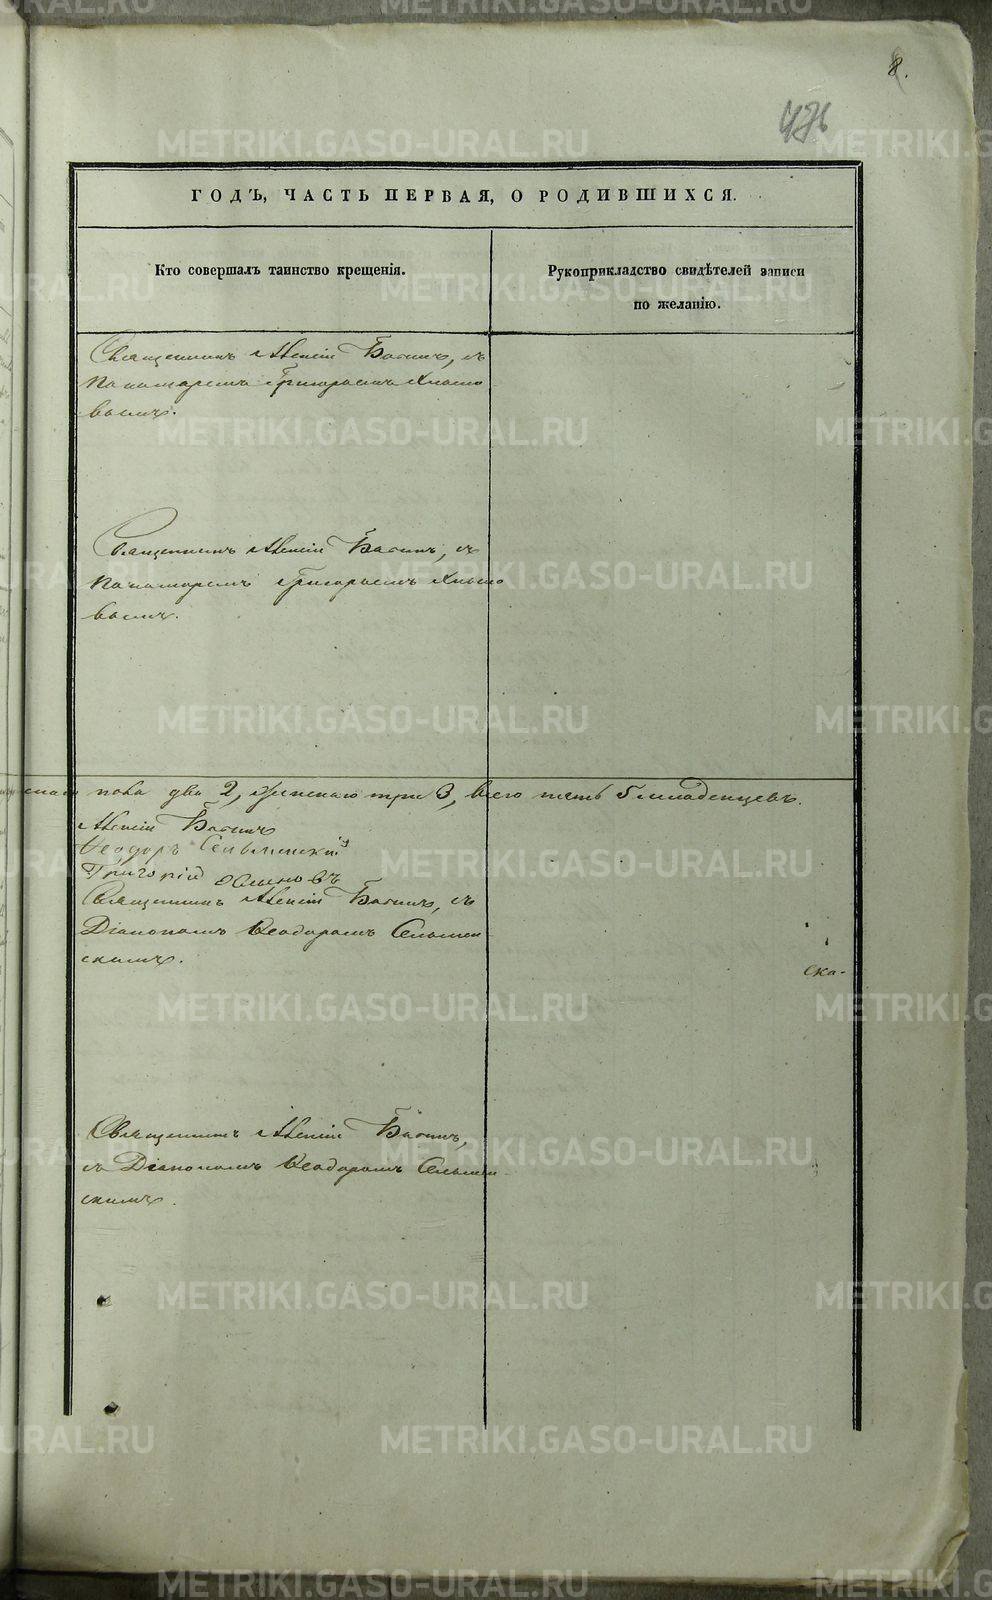 8.
476
ГОДЪ, ЧАСТЬ ПЕРВАЯ, О РОДИВШИХСЯ.
Кто совершалъ таинство крещенія.
Рукоприкладство свидѣтелей записи
по желанію.
Священникъ Алексій Басинъ, съ
Понамаремъ Григоріемъ
вымъ.
Священникъ Алексій Басинъ, съ
Понамаремъ Григоріемъ
вымъ.
пола два 2, женскаго три 3, всего пять 5 младенцевъ.
Алексій Басинъ
Ѳеодоръ Сельменскій
Григорій
Священникъ Алексій Басинъ, съ
Діакономъ Ѳеодоромъ Сельмен
скимъ.
ска-
Священникъ Алексій Басинъ,
съ Діакономъ Ѳеодоромъ Сельмен
скимъ.
METRIKI.GASO-URAL.RU